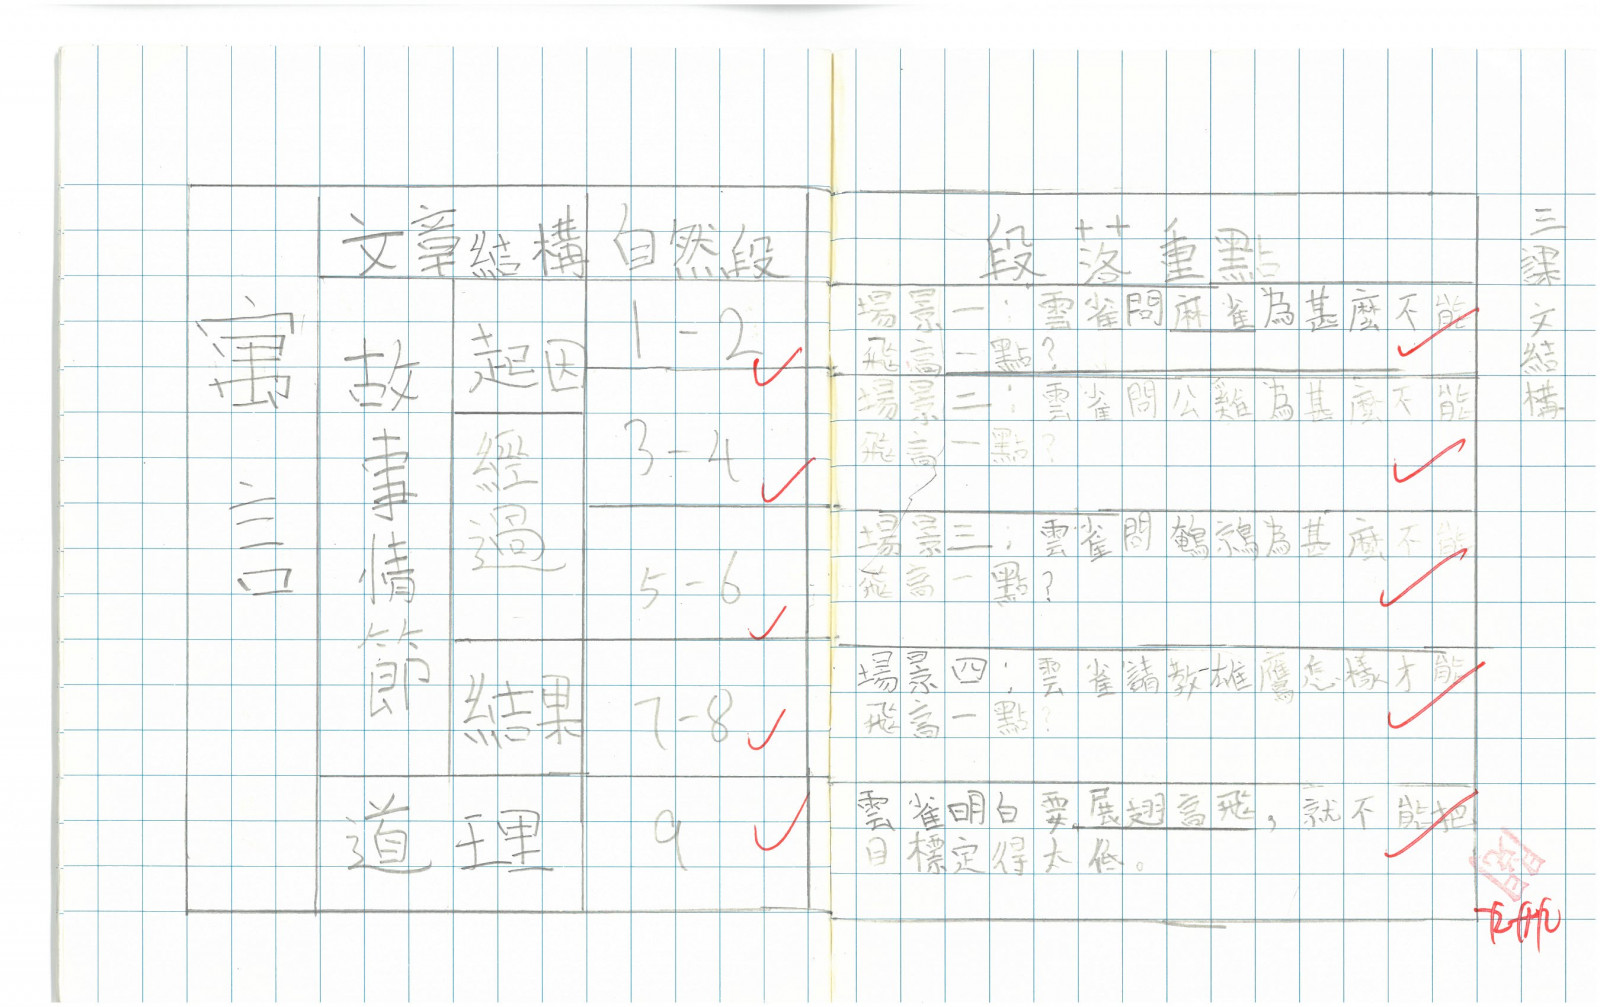 三課文結構
文章結構 自然段 段落重點
寓言
故事情節
起因 1-2
場景一：雲雀問麻雀為甚麼不能
飛高一點？
經過 3-4
場景二：雲雀問公雞為甚麼不能
飛高一點？
5-6
場景三：雲雀問鵪鶉為甚麼不能
飛高一點？
結果 7-8
場景四：雲雀請教雄鷹怎樣才能
飛高一點？
道理 9
雲雀明白要展翅高飛，就不能把
目標定得太低。
閱